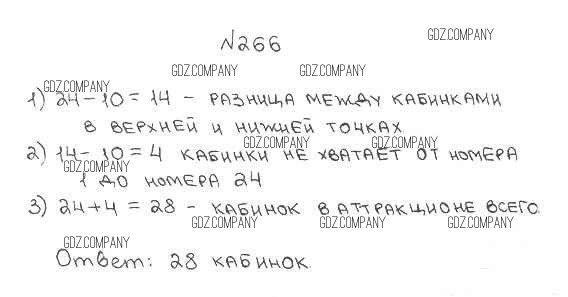 №266
GDZ.COMPANY
GDZ.COMPANY GDZ.COMPANY
GDZ.COMPANY
1) 24-10=14 - РАЗНИЦА МЕЖДУ КАБИНКАМИ
В ВЕРХНЕЙ И НИЖНЕЙ ТОЧКАХ
GDZ.COMPANY GDZ.COMPANY
2) 14-10=4 КАБИНКИ НЕ ХВАТАЕТ ОТ НОМЕРА
GDZ.COMPANY
1 ДО НОМЕРА 24
3) 24+4=28 - КАБИНОК В АТТРАКЦИОНЕ ВСЕГО.
GDZ.COMPANY GDZ.COMPANY GDZ.COMPANY
GDZ.COMPANY
Ответ: 28 КАБИНОК.